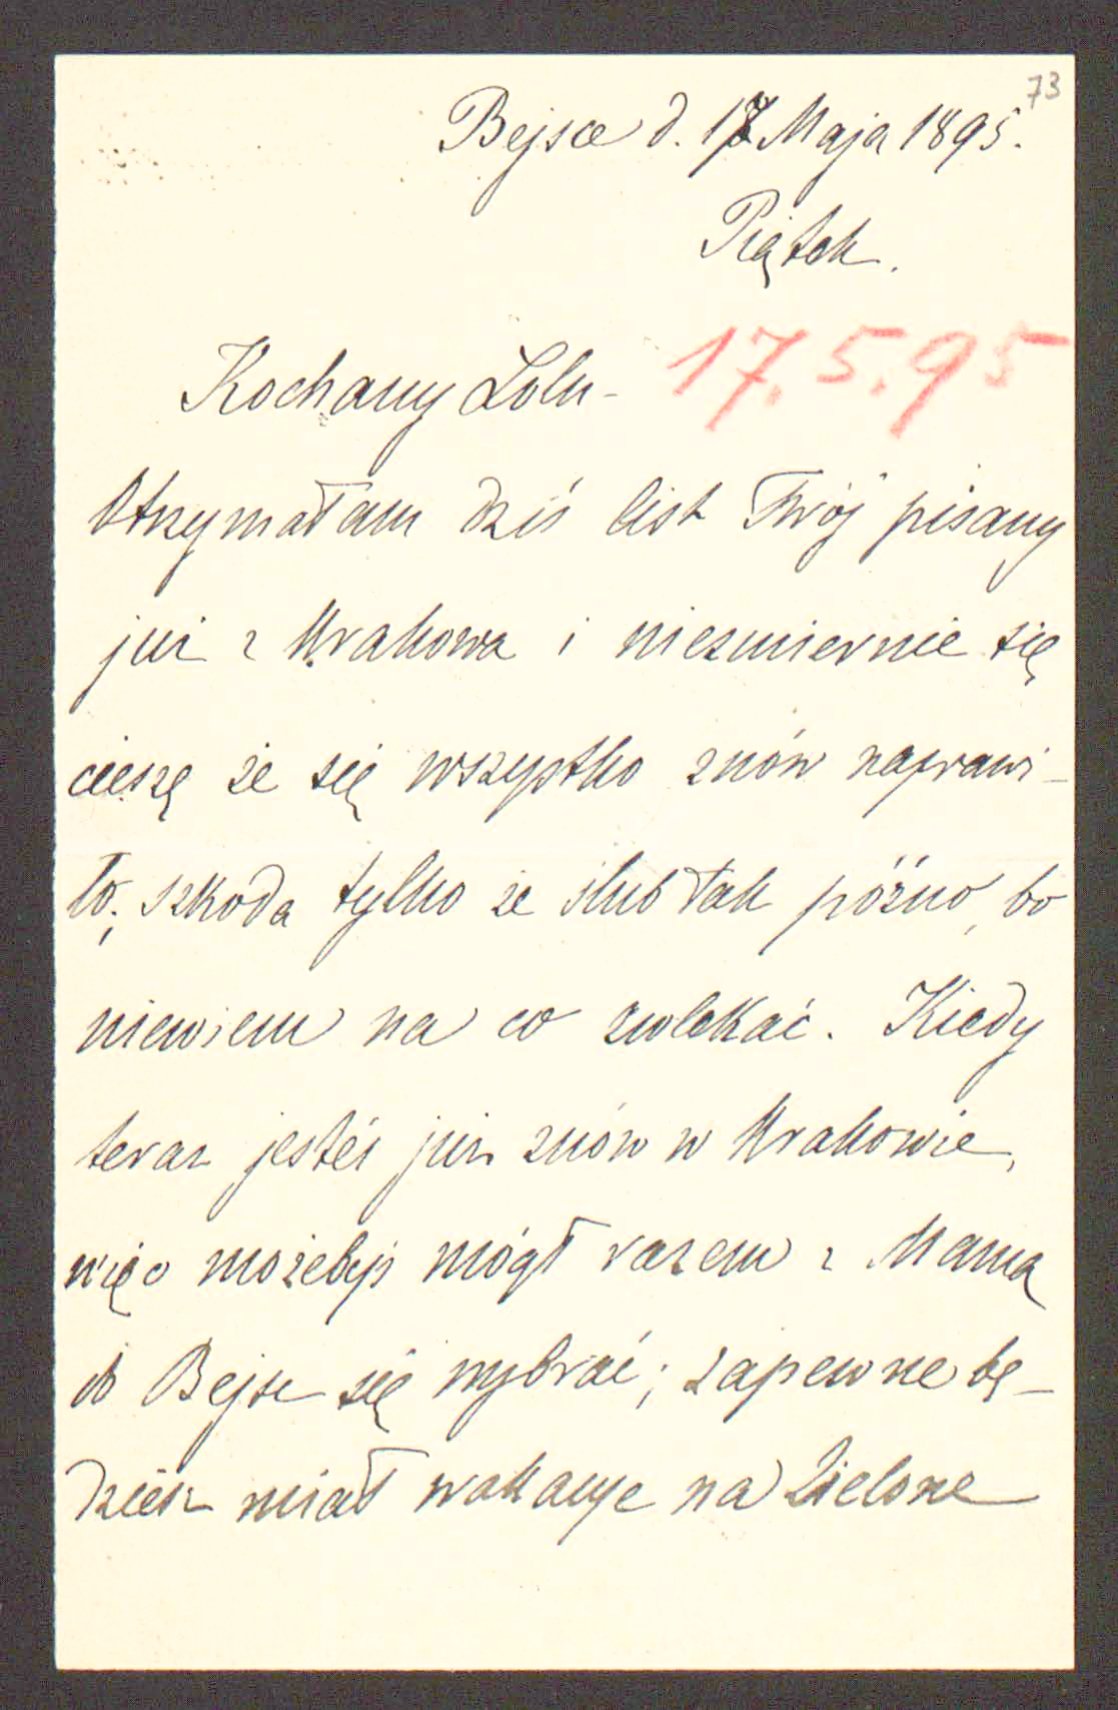 73
Bejsce d. 17 Maja 1895.
Piątek.
17.5.95
Kochany Lolu -
Otrzymałam dziś list Twój pisany
już z Krakowa i niezmiernie się
cieszę że się wszystko znów naprawi-
ło; szkoda tylko że ślub tak późno, bo
niewiem na co zwlekać. Kiedy
teraz jesteś już znów w Krakowie,
więc możebyś mógł razem z Mamą
do Bejsc się wybrać; zapewne bę-
dziesz miał wakanye na Zielone